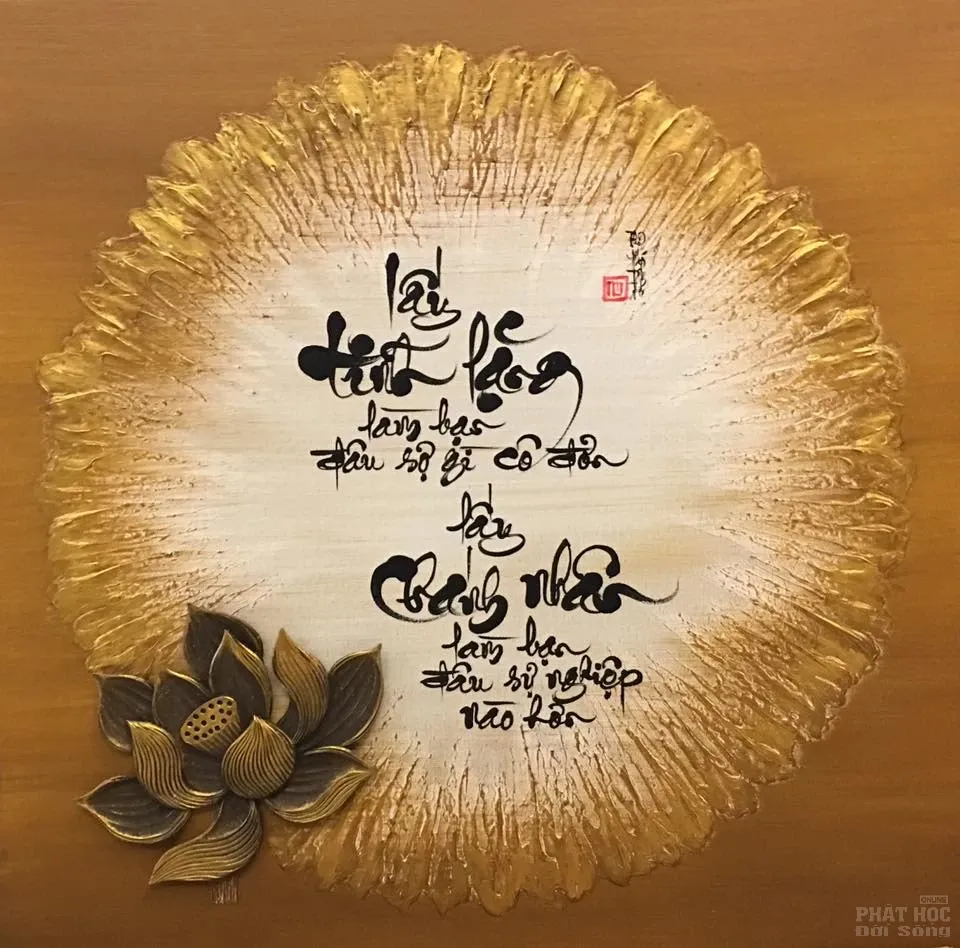 lấy
tĩnh lặng
làm bạn
đâu sợ gì cô đơn
lấy
Chánh nhân
làm bạn
đâu sự nghiệp
nào hơn
ONLINE
PHẬT HỌC
Đời Sống